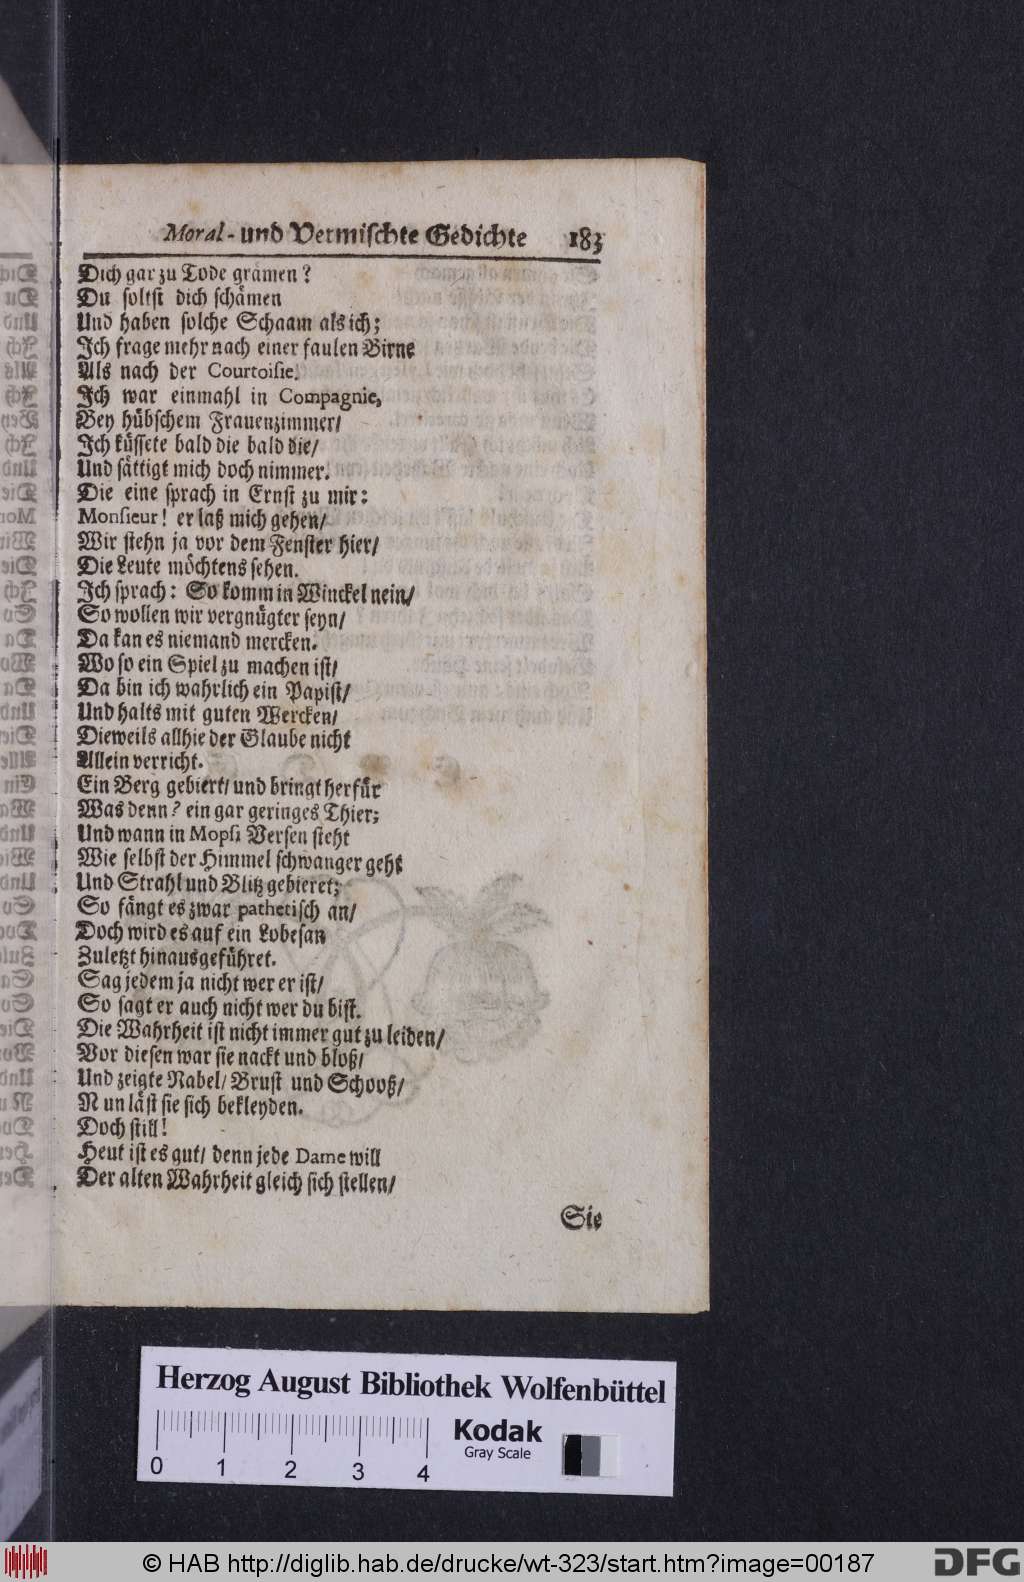 Moral- und Vermischte Gedichte 183
Dich gar zu Tode grämen?
Du soltst dich schämen
Und haben solche Schaam als ich;
Ich frage mehr nach einer faulen Birne
Als nach der Courtoisie.
Ich war einmahl in Compagnie,
Bey hübschem Frauenzimmer/
Ich küssete bald die bald die/
Und sättigt mich doch nimmer.
Die eine sprach in Ernst zu mir:
Monsieur! er laß mich gehen/
Wir stehn ja vor dem Fenster hier/
Die Leute möchtens sehen.
Ich sprach: So komm in Winckel nein/
So wollen wir vergnügter seyn/
Da kan es niemand mercken.
Wo so ein Spiel zu machen ist/
Da bin ich wahrlich ein Papist/
Und halts mit guten Wercken/
Dieweils allhie der Glaube nicht
Allein verricht.
Ein Berg gebiert/ und bringt herfür
Was denn? ein gar geringes Thier;
Und wann in Mopsi Versen steht
Wie selbst der Himmel schwanger geht
Und Strahl und Blitz gebieret;
So fängt es zwar pathetisch an/
Doch wird es auf ein Lobesan
Zuletzt hinausgeführet.
Sag jedem ja nicht wer er ist/
So sagt er auch nicht wer du bist.
Die Wahrheit ist nicht immer gut zu leiden/
Vor diesen war sie nackt und bloß/
Und zeigte Nabel/ Brust und Schooß/
Nun läst sie sich bekleyden.
Doch still!
Heut ist es gut/ denn jede Dame will
Der alten Wahrheit gleich sich stellen/
Sie
Herzog August Bibliothek Wolfenbüttel
Kodak
Gray Scale
0 1 2 3 4
© HAB http://diglib.hab.de/drucke/wt-323/start.htm?image=00187
DFG